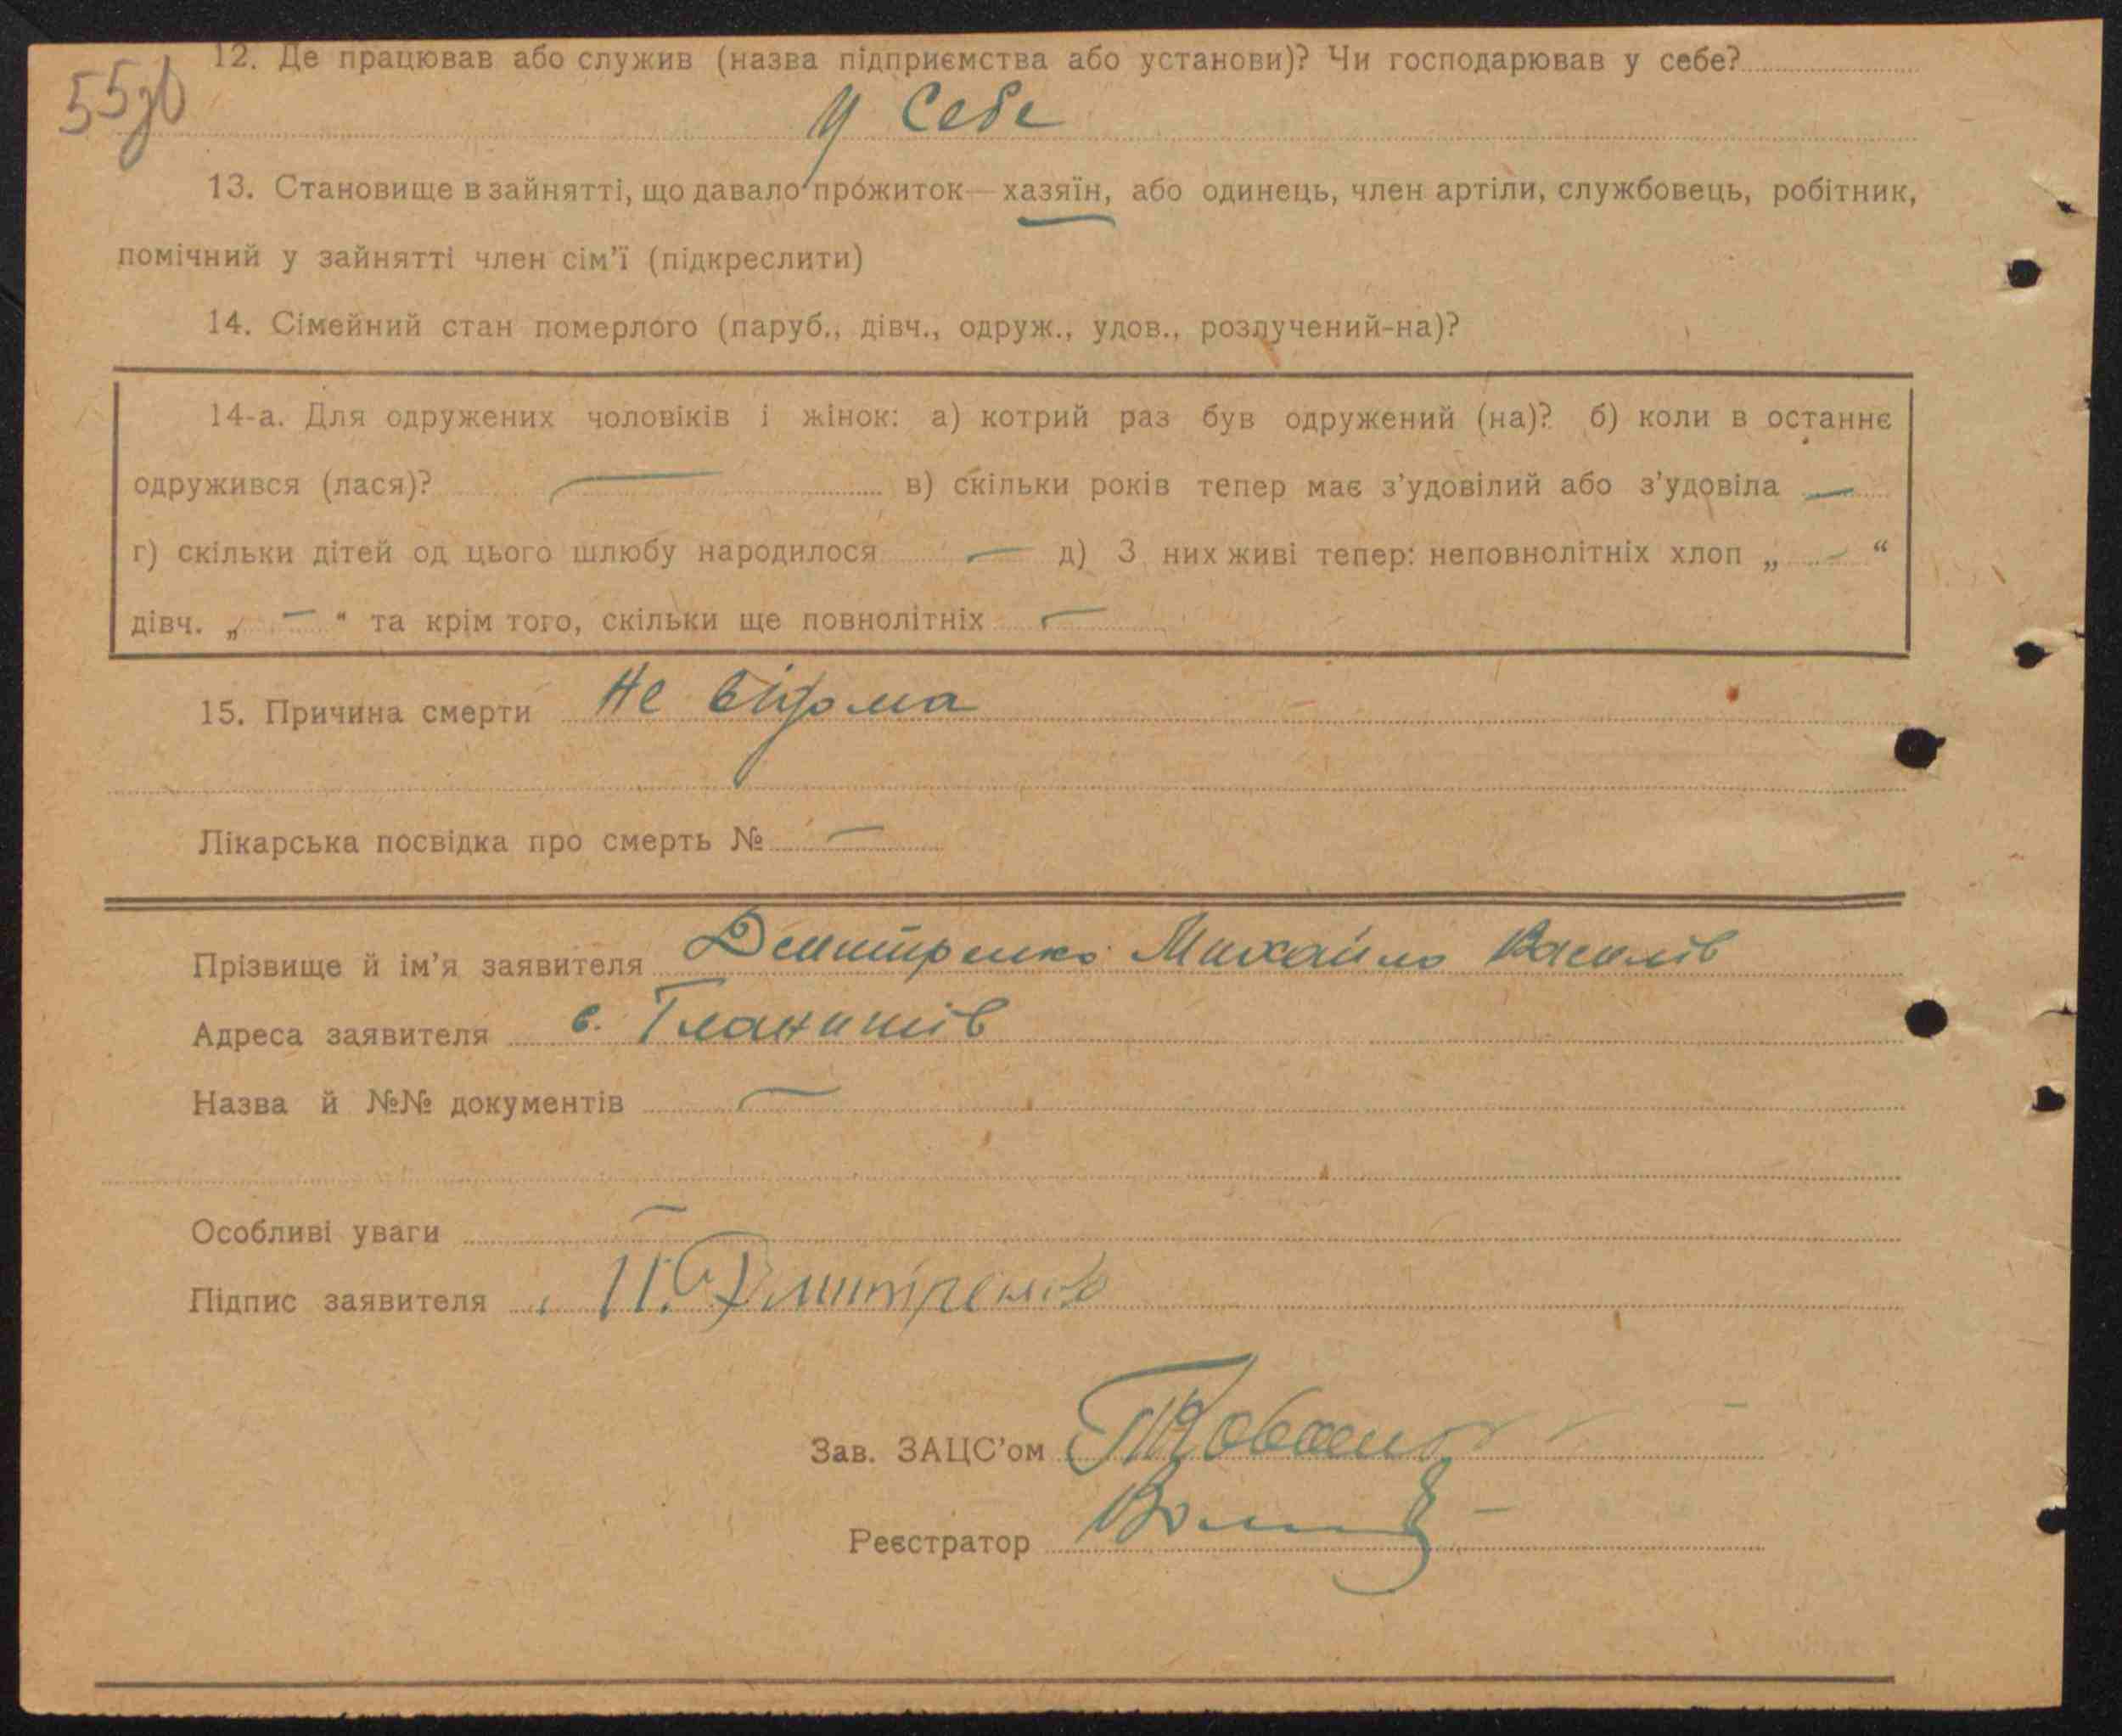 55зв
12. Де працював або служив (назва підприємства або установи)? Чи господарював у себе?
У себе
13. Становище в зайнятті, що давало прожиток — хазяїн, або одинець, член артіли, службовець, робітник,
помічний у зайнятті член сім’ї (підкреслити)
14. Сімейний стан померлого (паруб., дівч., одруж., удов., розлучений-на)?
14-а. Для одружених чоловіків і жінок: а) котрий раз був одружений (на)? б) коли в останнє
одружився (лася)? — в) скільки років тепер має з’удовілий або з’удовіла —
г) скільки дітей од цього шлюбу народилося — д) З них живі тепер: неповнолітніх хлоп „ — “
дівч. „ — “ та крім того, скільки ще повнолітніх —
15. Причина смерти Не відома
Лікарська посвідка про смерть № —
Прізвище й ім’я заявителя Дмитренко Михайло Василів
Адреса заявителя с. Гланишів
Назва й №№ документів —
Особливі уваги —
Підпис заявителя Дмитренко
Зав. ЗАЦС’ом
Реєстратор